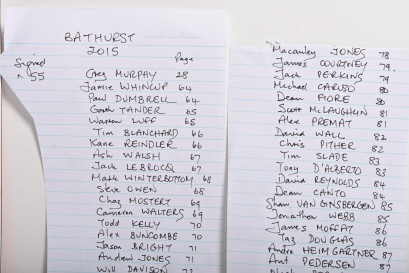 BATHURST
2015
Page
Signed
55
Greg MURPHY 28
Jamie WHINCUP 64
Paul DUMBRELL 64
Garth TANDER 65
Warren LUFF 65
Tim BLANCHARD 66
Kane REINDLER 66
Ash WALSH 67
Jack LEBROCQ 67
Mark WINTERBOTTOM 68
Steve OWEN 68
Chaz MOSTERT 69
Cameron WALTERS 69
Todd KELLY 70
Alex BUNCOMBE 70
Jason BRIGHT 71
Andrew JONES 71
Will DAVISON
Macauley JONES 78
James COURTNEY 79
Jack PERKINS 79
Michael CARUSO 80
Dean FIORE 80
Scott McLAUGHLIN 81
Alex PREMAT 81
David WALL 82
Chris PITHER 82
Tim SLADE 83
Tony D'ALBERTO 83
David REYNOLDS 84
Dean CANTO 84
Shane VAN GINSBERGEN 85
Jonathon WEBB 85
James MOFFAT 86
Taz DOUGLAS 86
Andre HEIMGARTNER 87
Ant PEDERSEN 87